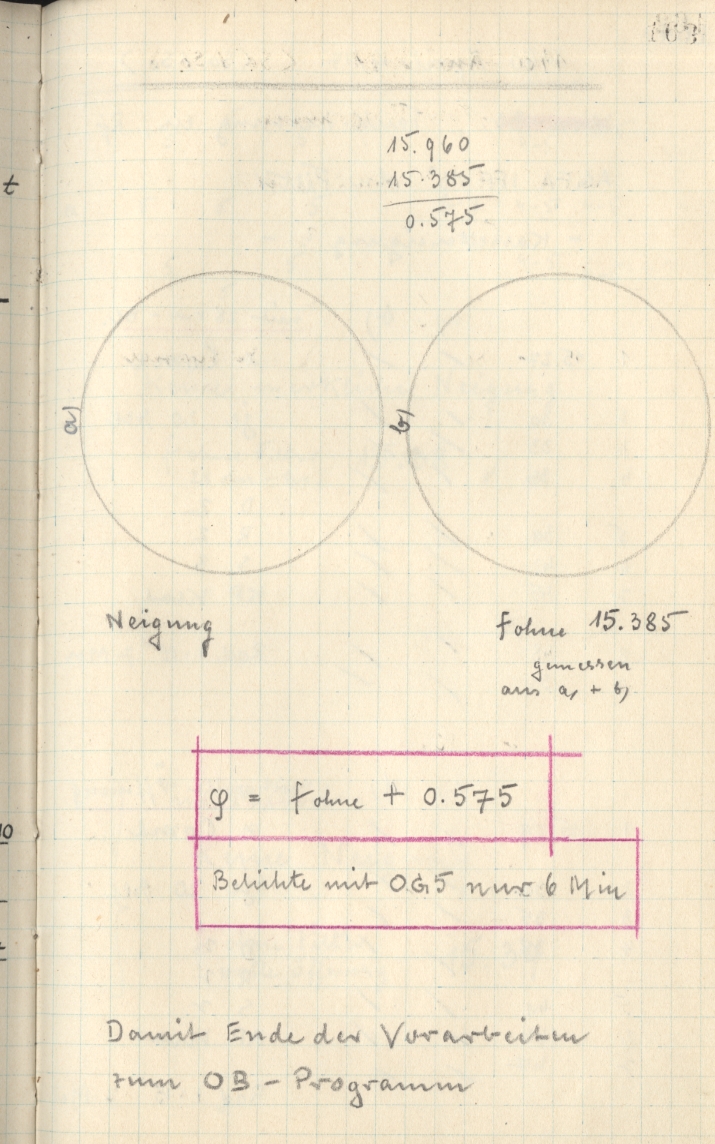 15.960
15.385
0.575
a)
b)
Neigung
fohne 15.385
gemessen
aus a) + b)
φ = fohne + 0.575
Belichte mit OG5 nur 6 Min
Damit Ende der Vorarbeiten
zum OB - Programm
t
10